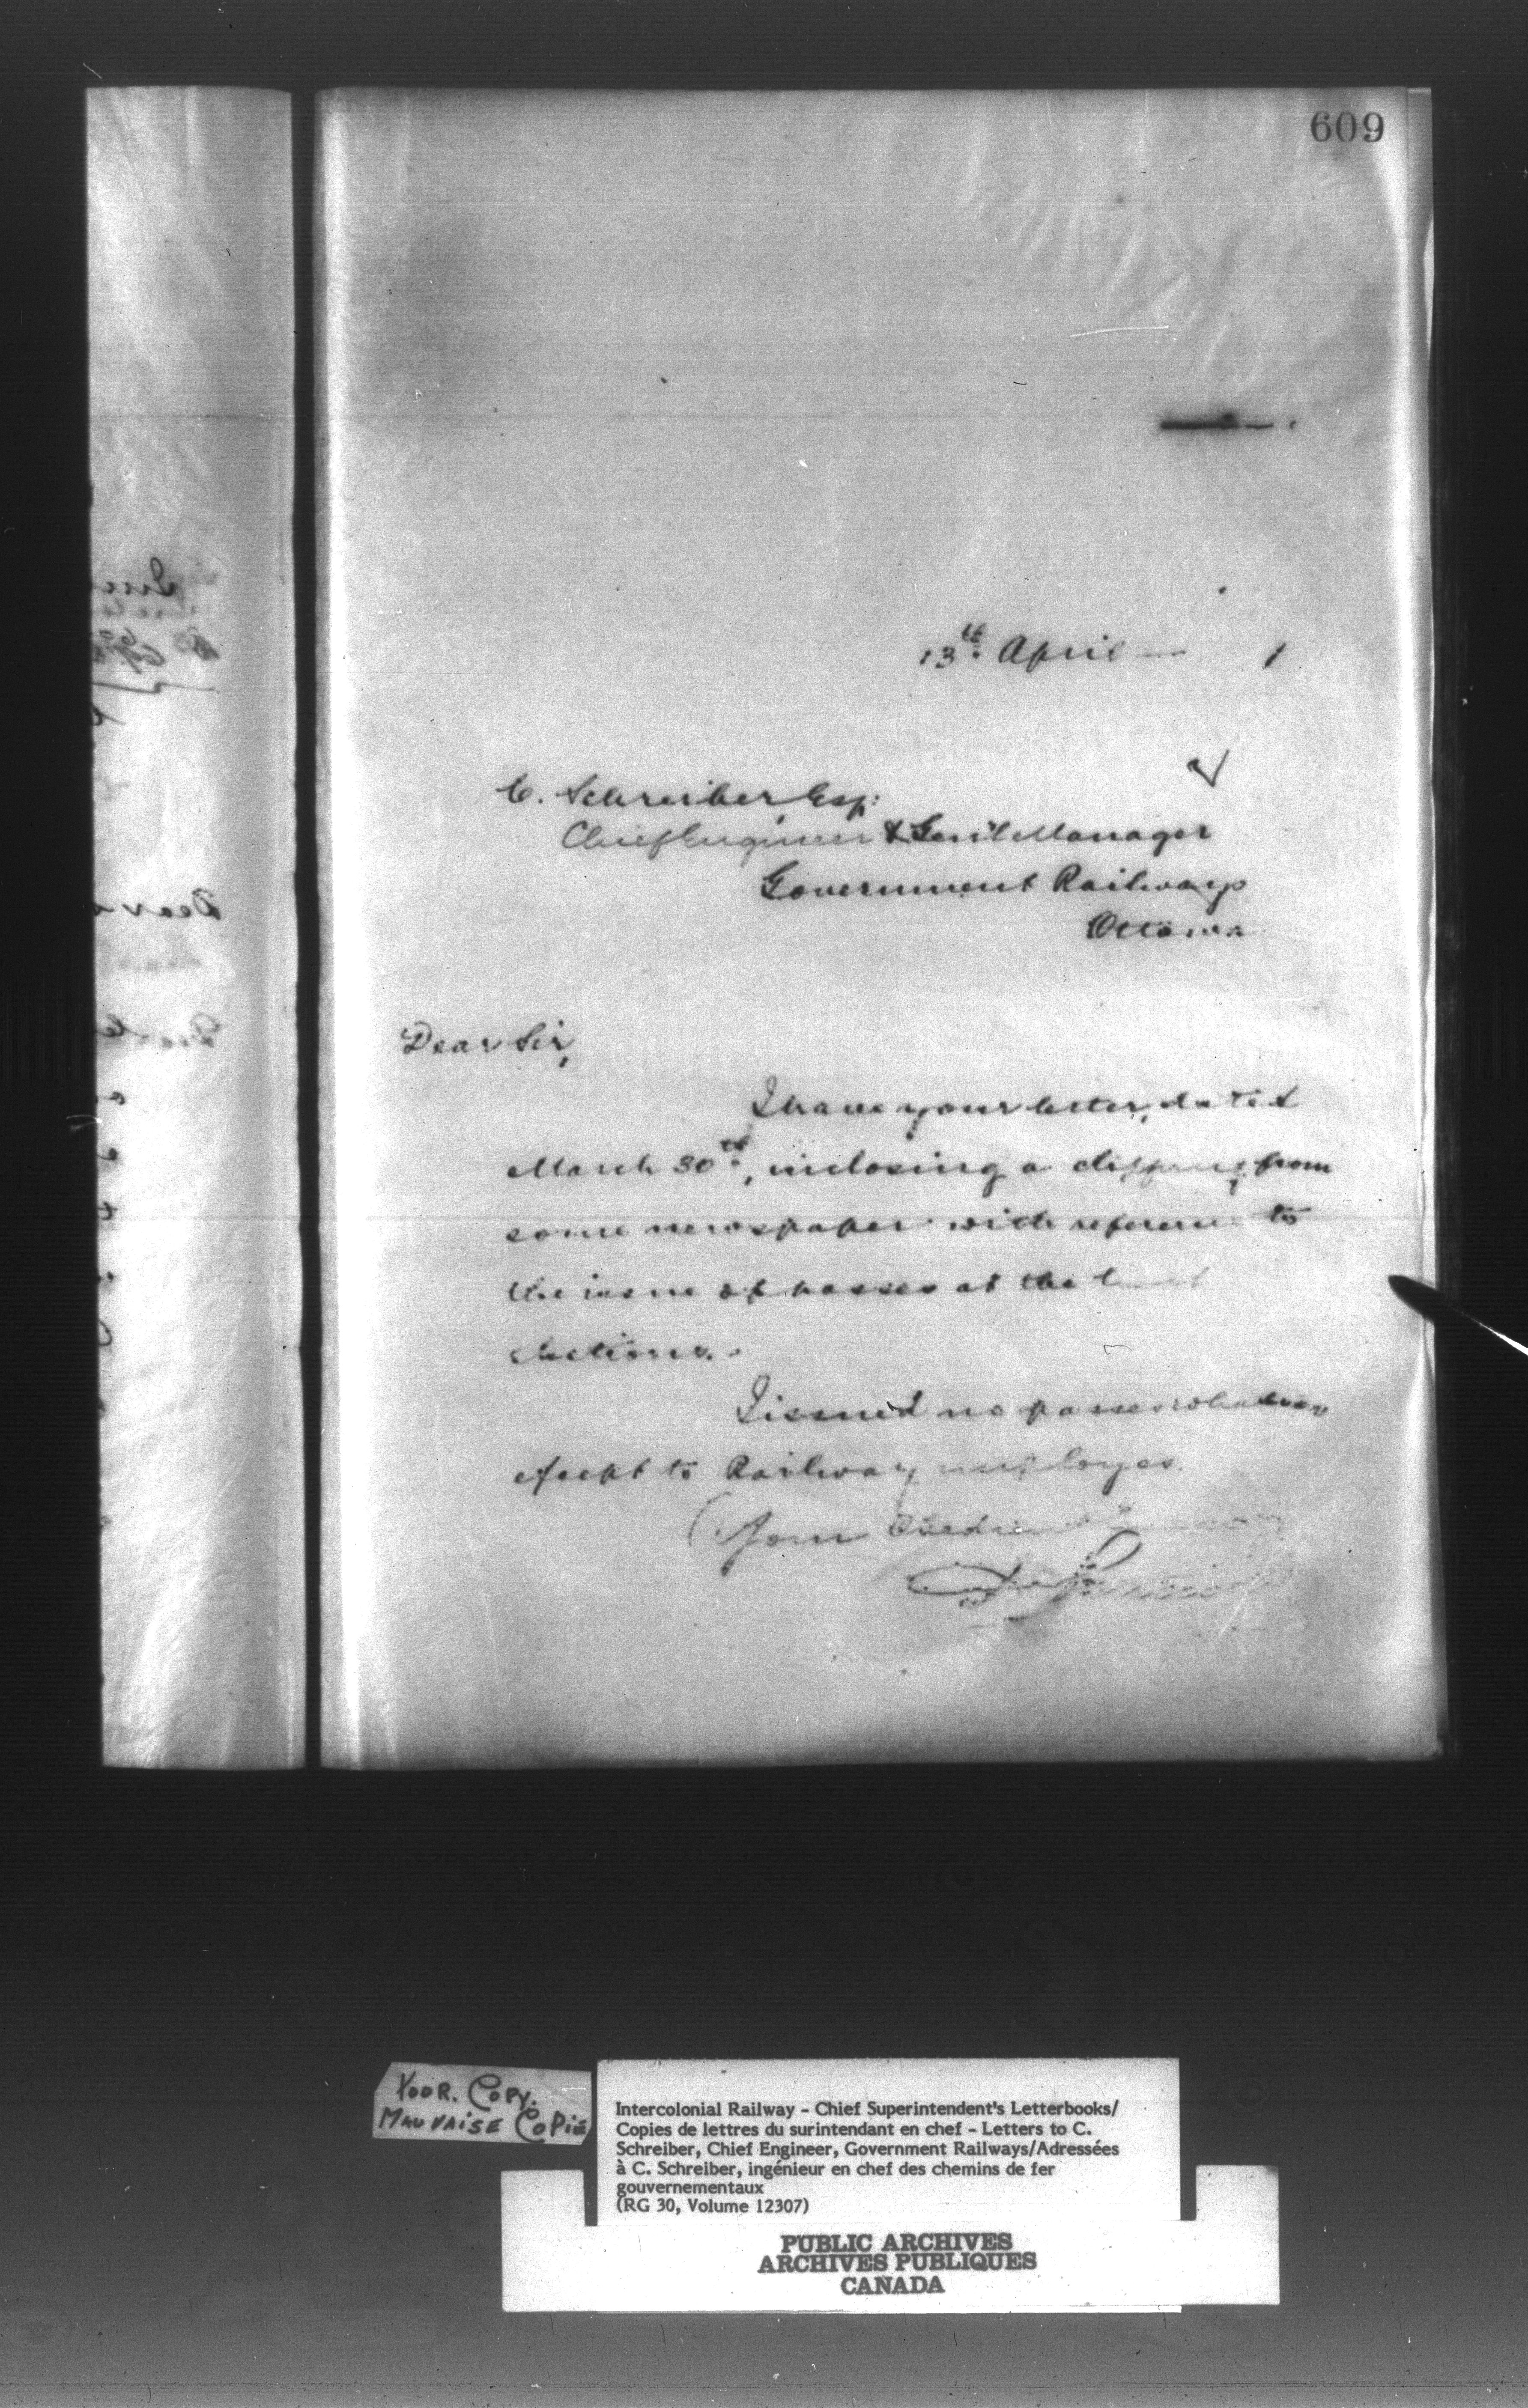 609
13th April 1
C. Schreiber, Esq:
Chief Engineer & Gen'l Manager
Government Railways
Ottawa
Dear Sir,
I have your letter, dated
March 30th, inclosing a clipping from
some newspaper with reference to
the issue of passes at the
elections.
I issued no passes whatever
except to Railway employes.
Your Obedient
Dear
POOR. COPY.
MAUVAISE COPIE
Intercolonial Railway - Chief Superintendent's Letterbooks/
Copies de lettres du surintendant en chef - Letters to C.
Schreiber, Chief Engineer, Government Railways/Adressées
à C. Schreiber, ingénieur en chef des chemins de fer
gouvernementaux
(RG 30, Volume 12307)
PUBLIC ARCHIVES
ARCHIVES PUBLIQUES
CANADA